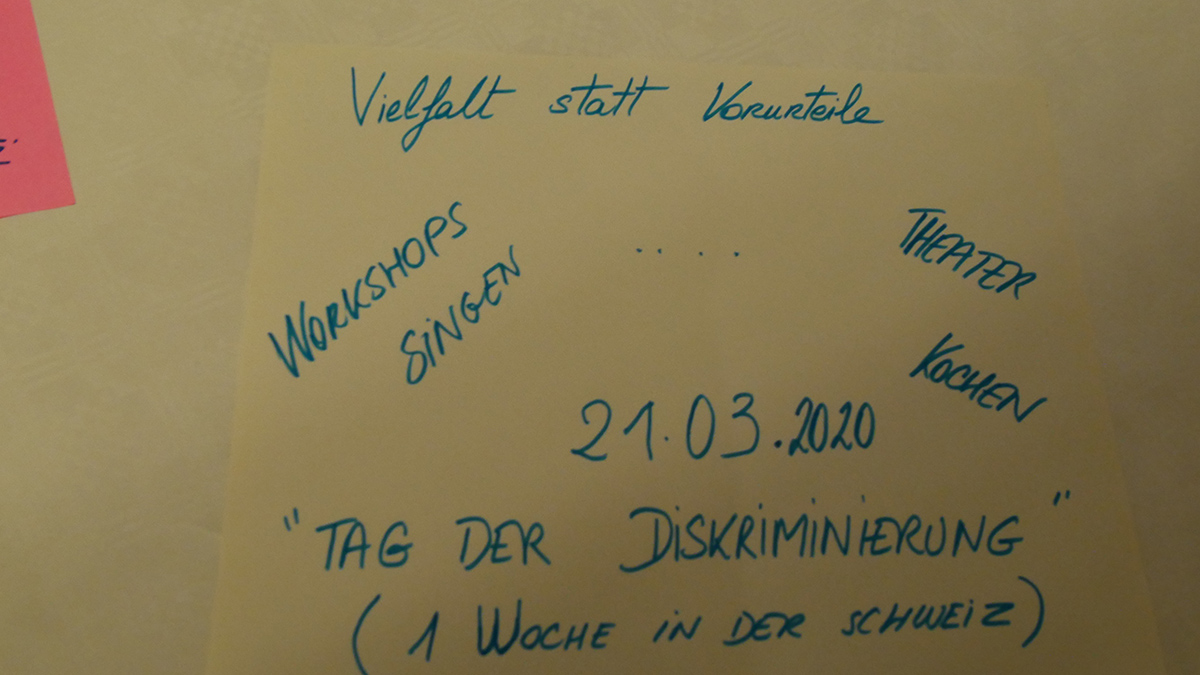 Vielfalt statt Vorurteile
WORKSHOPS
SINGEN
....
THEATER
KOCHEN
21.03.2020
"TAG DER DISKRIMINIERUNG"
(1 WOCHE IN DER SCHWEIZ)